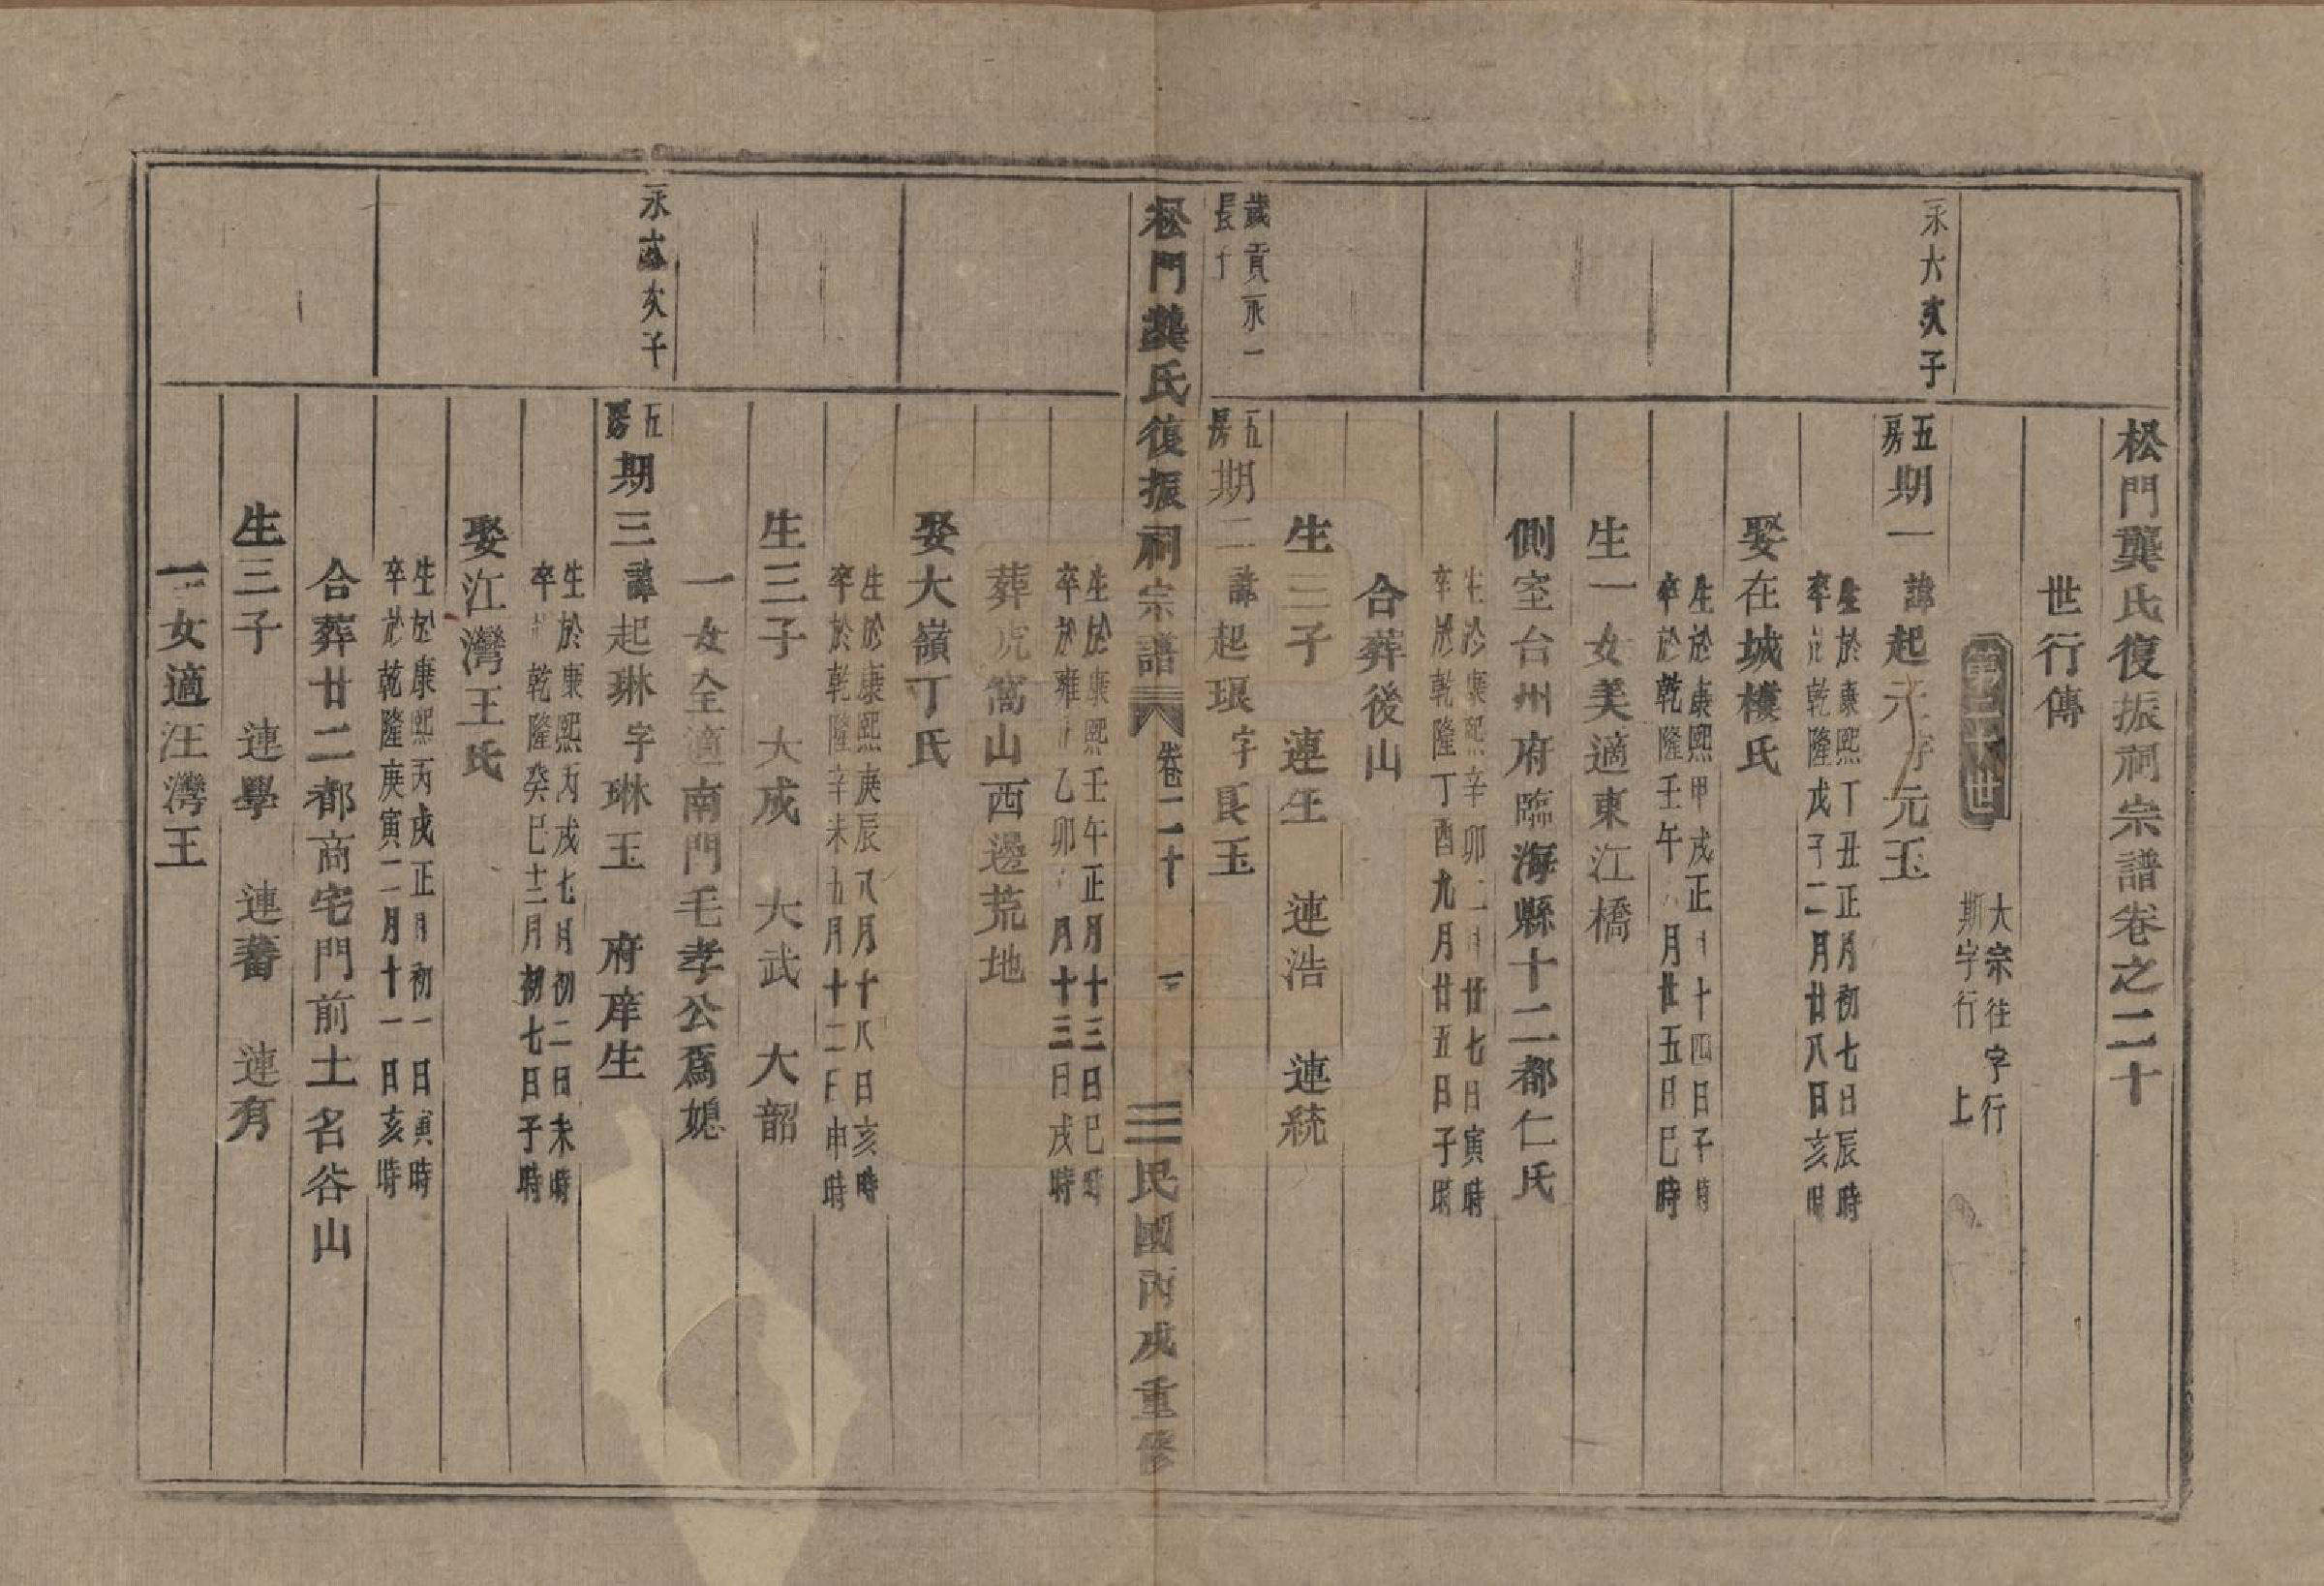 松門龔氏復振祠宗譜卷之二十
世行傳
世
大宗往字行
斯字行 上
永六次子
五房期一諱起 字元玉
生於康熙丁丑正月初七日辰時
卒於乾隆戊子二月廿八日亥時
娶在城樓氏
生於康熙甲戌正月十四日子時
卒於乾隆壬午 月廿五日巳時
生一女美適東江橋
側室台州府臨海縣十二都仁氏
生於康熙辛卯二月廿七日寅時
卒於乾隆丁酉九月廿五日子時
合葬後山
生三子 連生 連浩 連統
歲貢永一
長子
五房期二諱起珢字艮玉
松門龔氏復振祠宗譜 卷二十 一 民國丙戌重修
生於康熙壬午正月十三日巳時
卒於雍正乙卯 月十三日戌時
葬虎窩山西邊荒地
娶大嶺丁氏
生於康熙庚辰八月十八日亥時
卒於乾隆辛未九月十二日申時
生三子 大成 大武 大韶
一女全適南門毛孝公為媳
永 次子
五房期三諱起琳字琳玉 府庠生
生於康熙丙戌七月初二日未時
卒於乾隆癸巳十二月初七日子時
娶江灣王氏
生於康熙丙戌正月初一日寅時
卒於乾隆庚寅二月十一日亥時
合葬廿二都商宅門前土名谷山
生三子 連學 連蕃 連有
一女適汪灣王